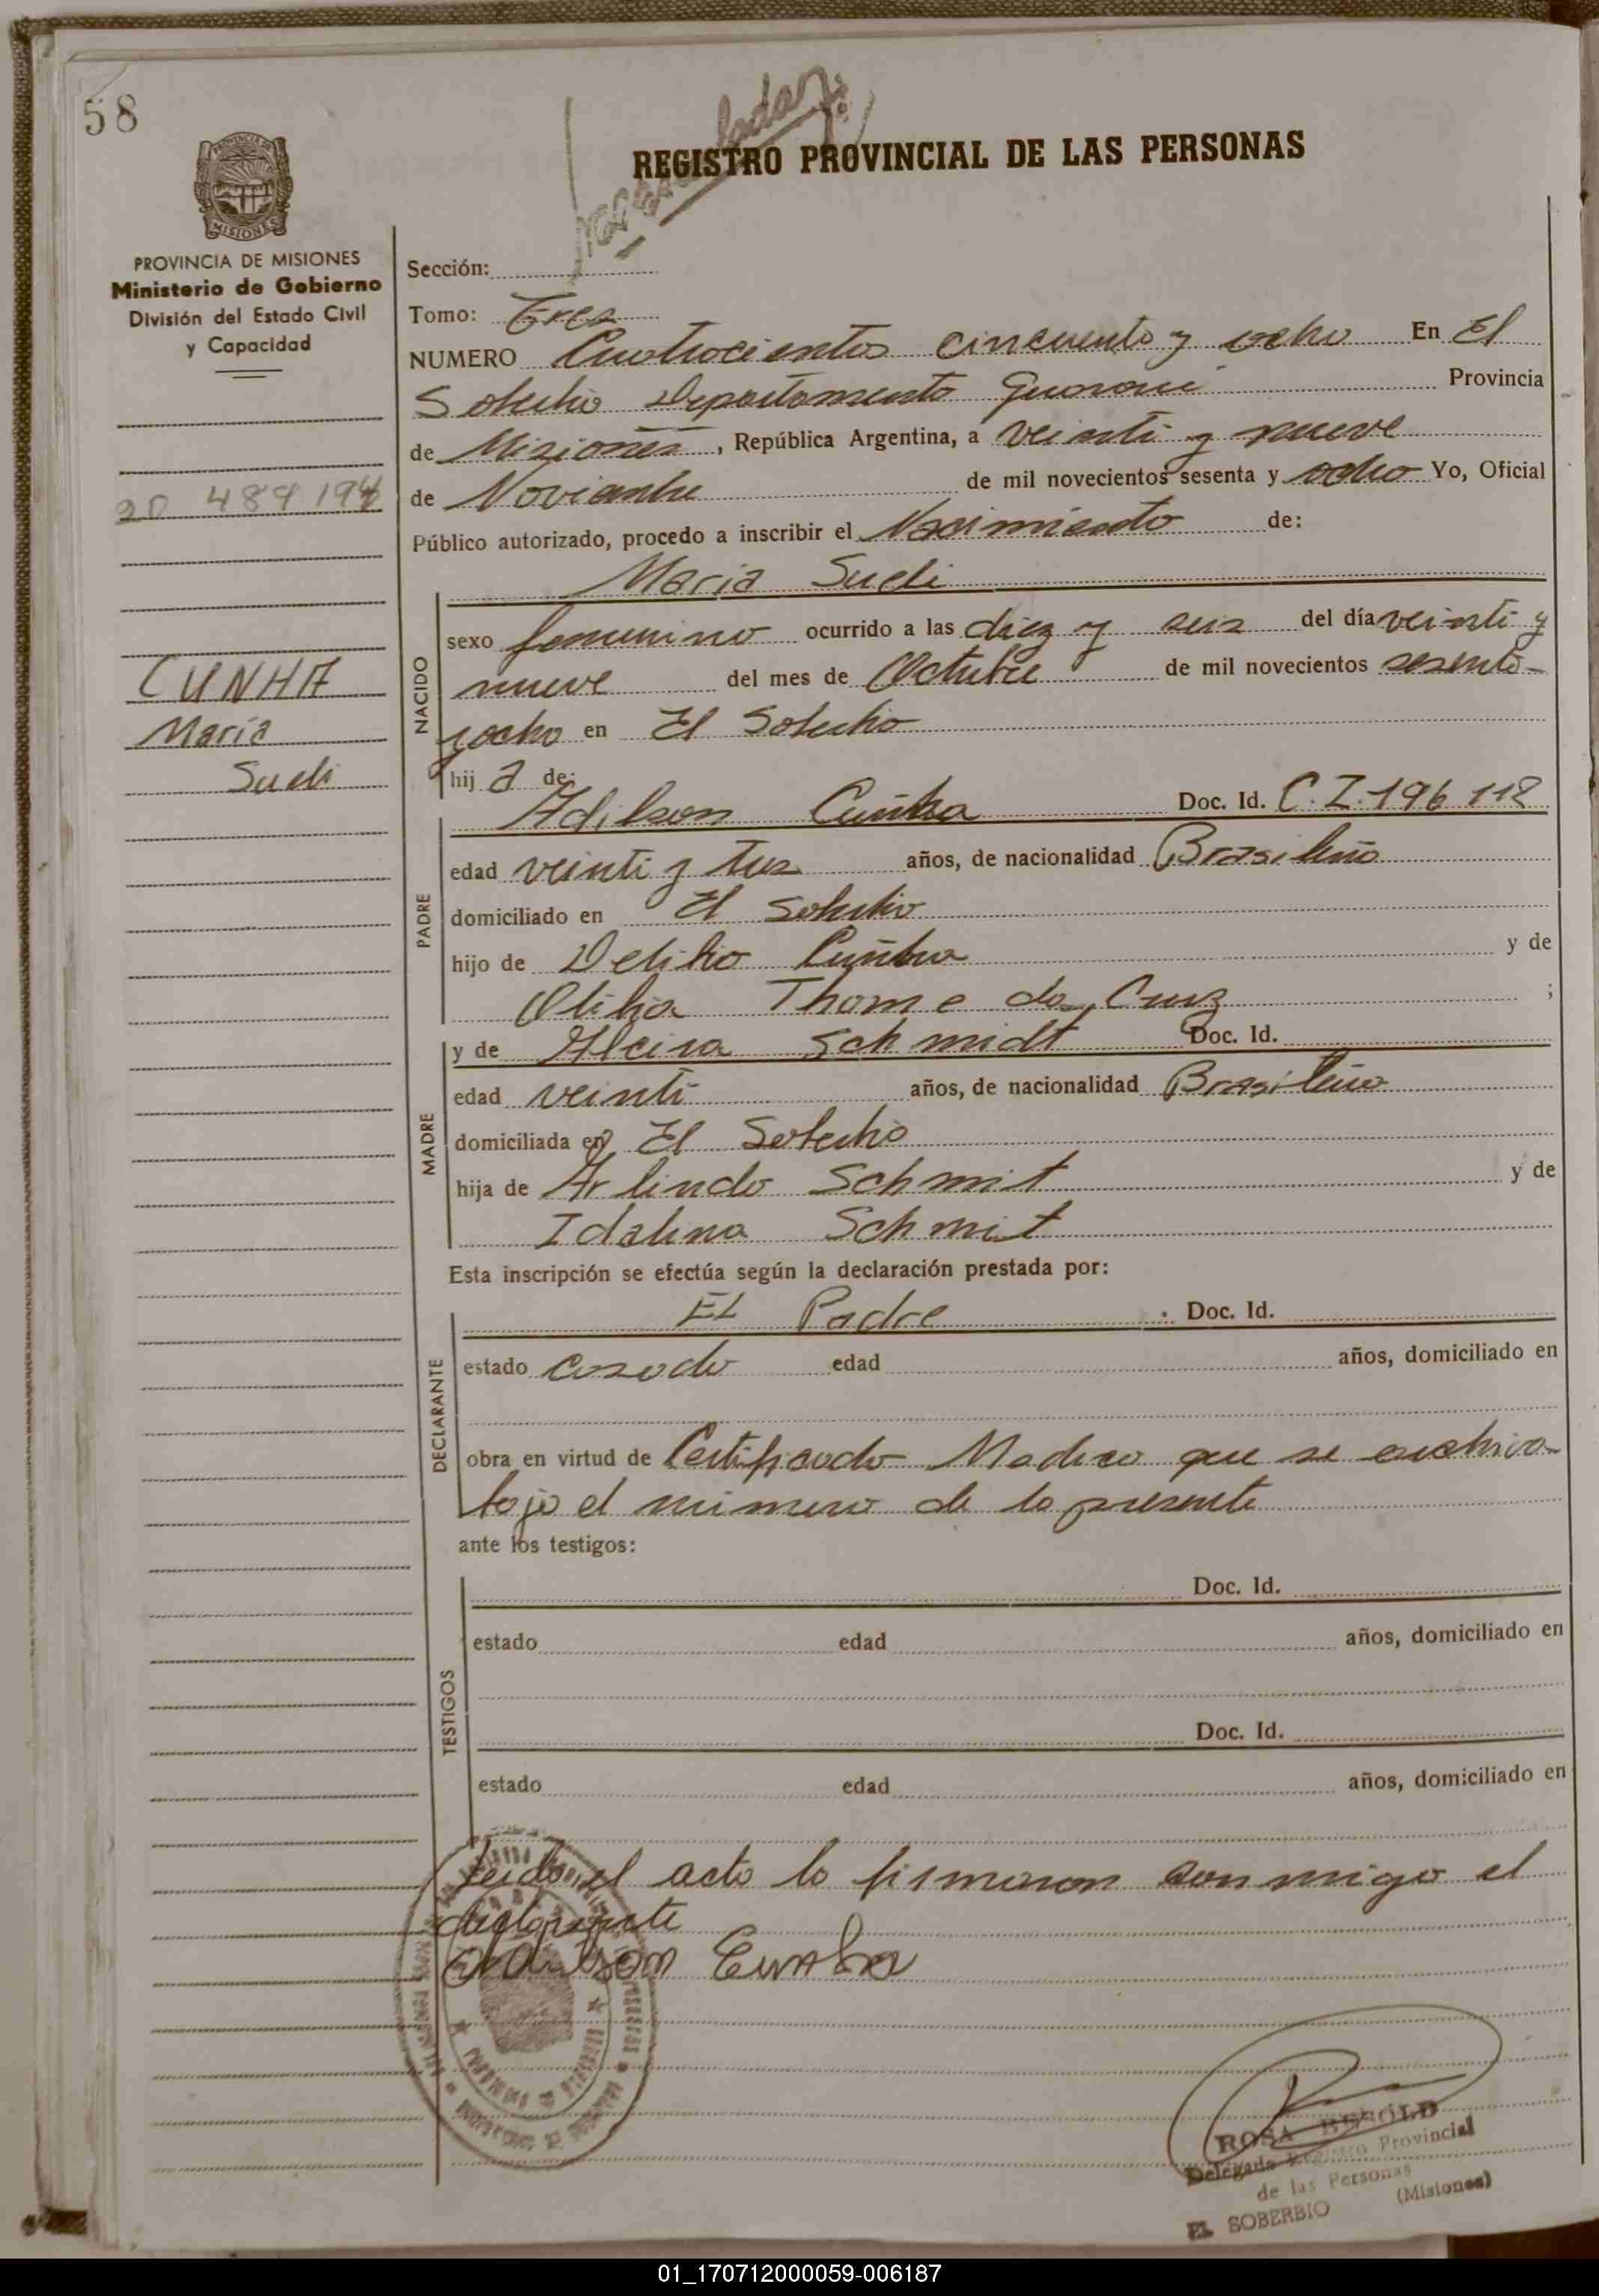 58
REGISTRO PROVINCIAL DE LAS PERSONAS
PROVINCIA DE MISIONES
Ministerio de Gobierno
División del Estado Civil
y Capacidad
Sección:
Tomo: Tres
NUMERO Cuatrocientos cincuenta y ocho En El
Soberbio Departamento Guarani Provincia
de Misiones, República Argentina, a veinti y nueve
de Noviembre de mil novecientos sesenta y ocho Yo, Oficial
Público autorizado, procedo a inscribir el Nacimiento de:
Maria Sueli
CUNHA
María
Sueli
NACIDO
sexo femenino ocurrido a las diez y seis del día veinti y
nueve del mes de Octubre de mil novecientos sesenta
y ocho en El Soberbio
hija de:
PADRE
Adilson Cunha Doc. Id. C.I. 196 112
edad veinti y tres años, de nacionalidad Brasileño
domiciliado en El Soberbio
hijo de Cunha y de
Thome da Cruz ;
MADRE
y de Alcira Schmidt Doc. Id.
edad veinti años, de nacionalidad Brasileña
domiciliada en El Soberbio
hija de Arlindo Schmit y de
Idalina Schmit
Esta inscripción se efectúa según la declaración prestada por:
DECLARANTE
El Padre Doc. Id.
estado casado edad años, domiciliado en
obra en virtud de Certificado Medico que se archiva
bajo el numero de la presente
ante los testigos:
TESTIGOS
Doc. Id.
estado edad años, domiciliado en
Doc. Id.
estado edad años, domiciliado en
Leido el acto lo firmaron conmigo el
declarante
Adilson Cunha
ROSA BESOLD
Delegada Registro Provincial
de las Personas
EL SOBERBIO (Misiones)
01_170712000059-006187